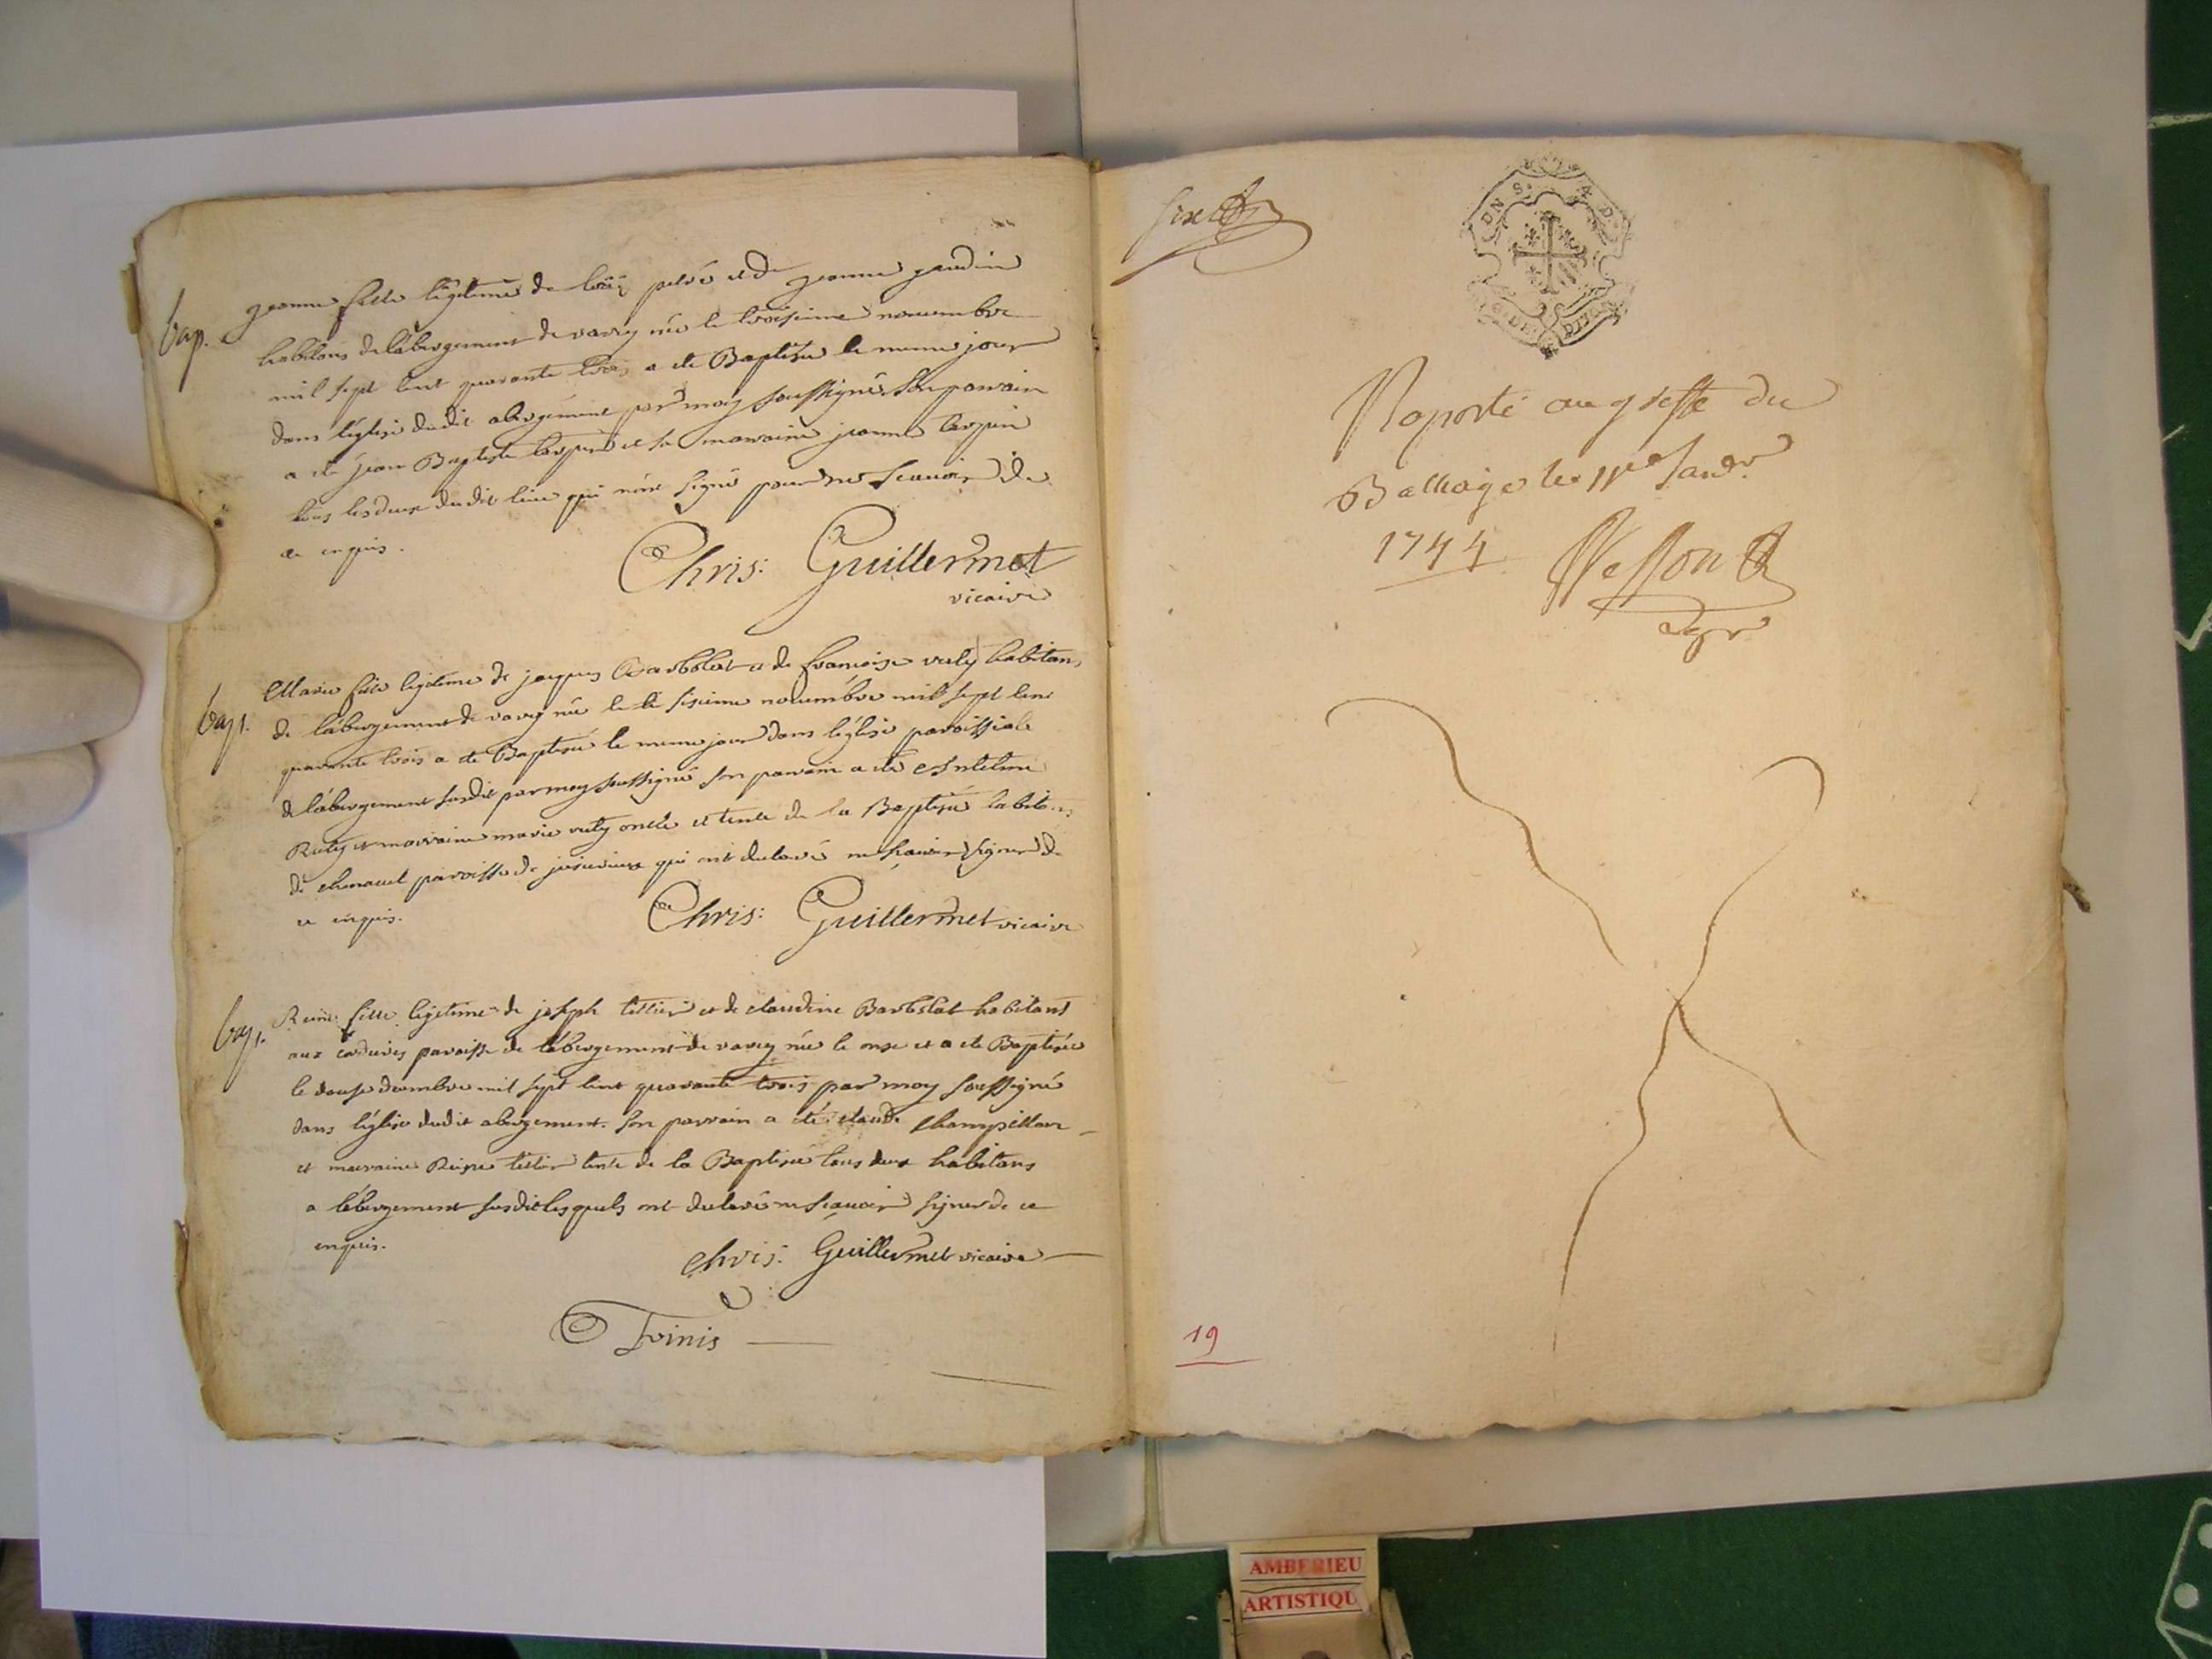 bap. jeanne fille légitime de loüis et de jeanne gaudin
habitans de labergement de varey née le troisieme novembre
mil sept cent quarante trois a ete Baptisée le meme jour
dans léglise dudit abergement par moy soussigné son parrain
a été jean Baptiste et sa marraine jeanne
tous les deux dudit lieu qui n'ont signé pour ne scavoir de
ce enquis.
Chris: Guillermet
vicaire
bapt. Marie fille legitime de jacques Barbolat et de francoise ruty habitans
de labergement de varey née le le sixieme novembre mil sept cent
quarante trois a ete Baptisée le meme jour dans léglise paroissiale
de labergement susdit par moy soussigné son parrain a été Antelme
Ruty et marraine marie ruty oncle et tente de la Baptisée habitans
de chenavel paroisse de jujurieux qui ont declaré ne scavoir signer de
ce enquis.
Chris: Guillermet vicaire
bapt. Reine fille légitime de joseph tettier et de claudine Barbolat habitans
aux paroisse de labergement de varey née le onze et a ete Baptisée
le douze decembre mil sept cent quarante trois par moy soussigné
dans léglise dudit abergement. son parrain a été claude Champillon
et marraine Reine tettier tente de la Baptisée tous deux habitans
a labergement susdit lesquels ont declaré ne scavoir signer de ce
enquis.
Chris: Guillermet vicaire
Finis
six
DN S. A D.
G. DE DIJON
Raporté au greffe du
Balliage le 11e Janv.
1744
19
AMBERIEU
ARTISTIQU